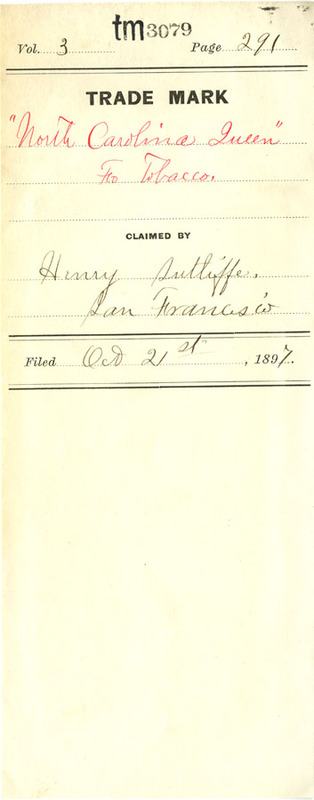 tm3079
Vol. 3 Page 291
TRADE MARK
"North Carolina Queen"
For Tobacco.
CLAIMED BY
Henry Sutliffe.
San Francisco
Filed Oct 21st, 1897.